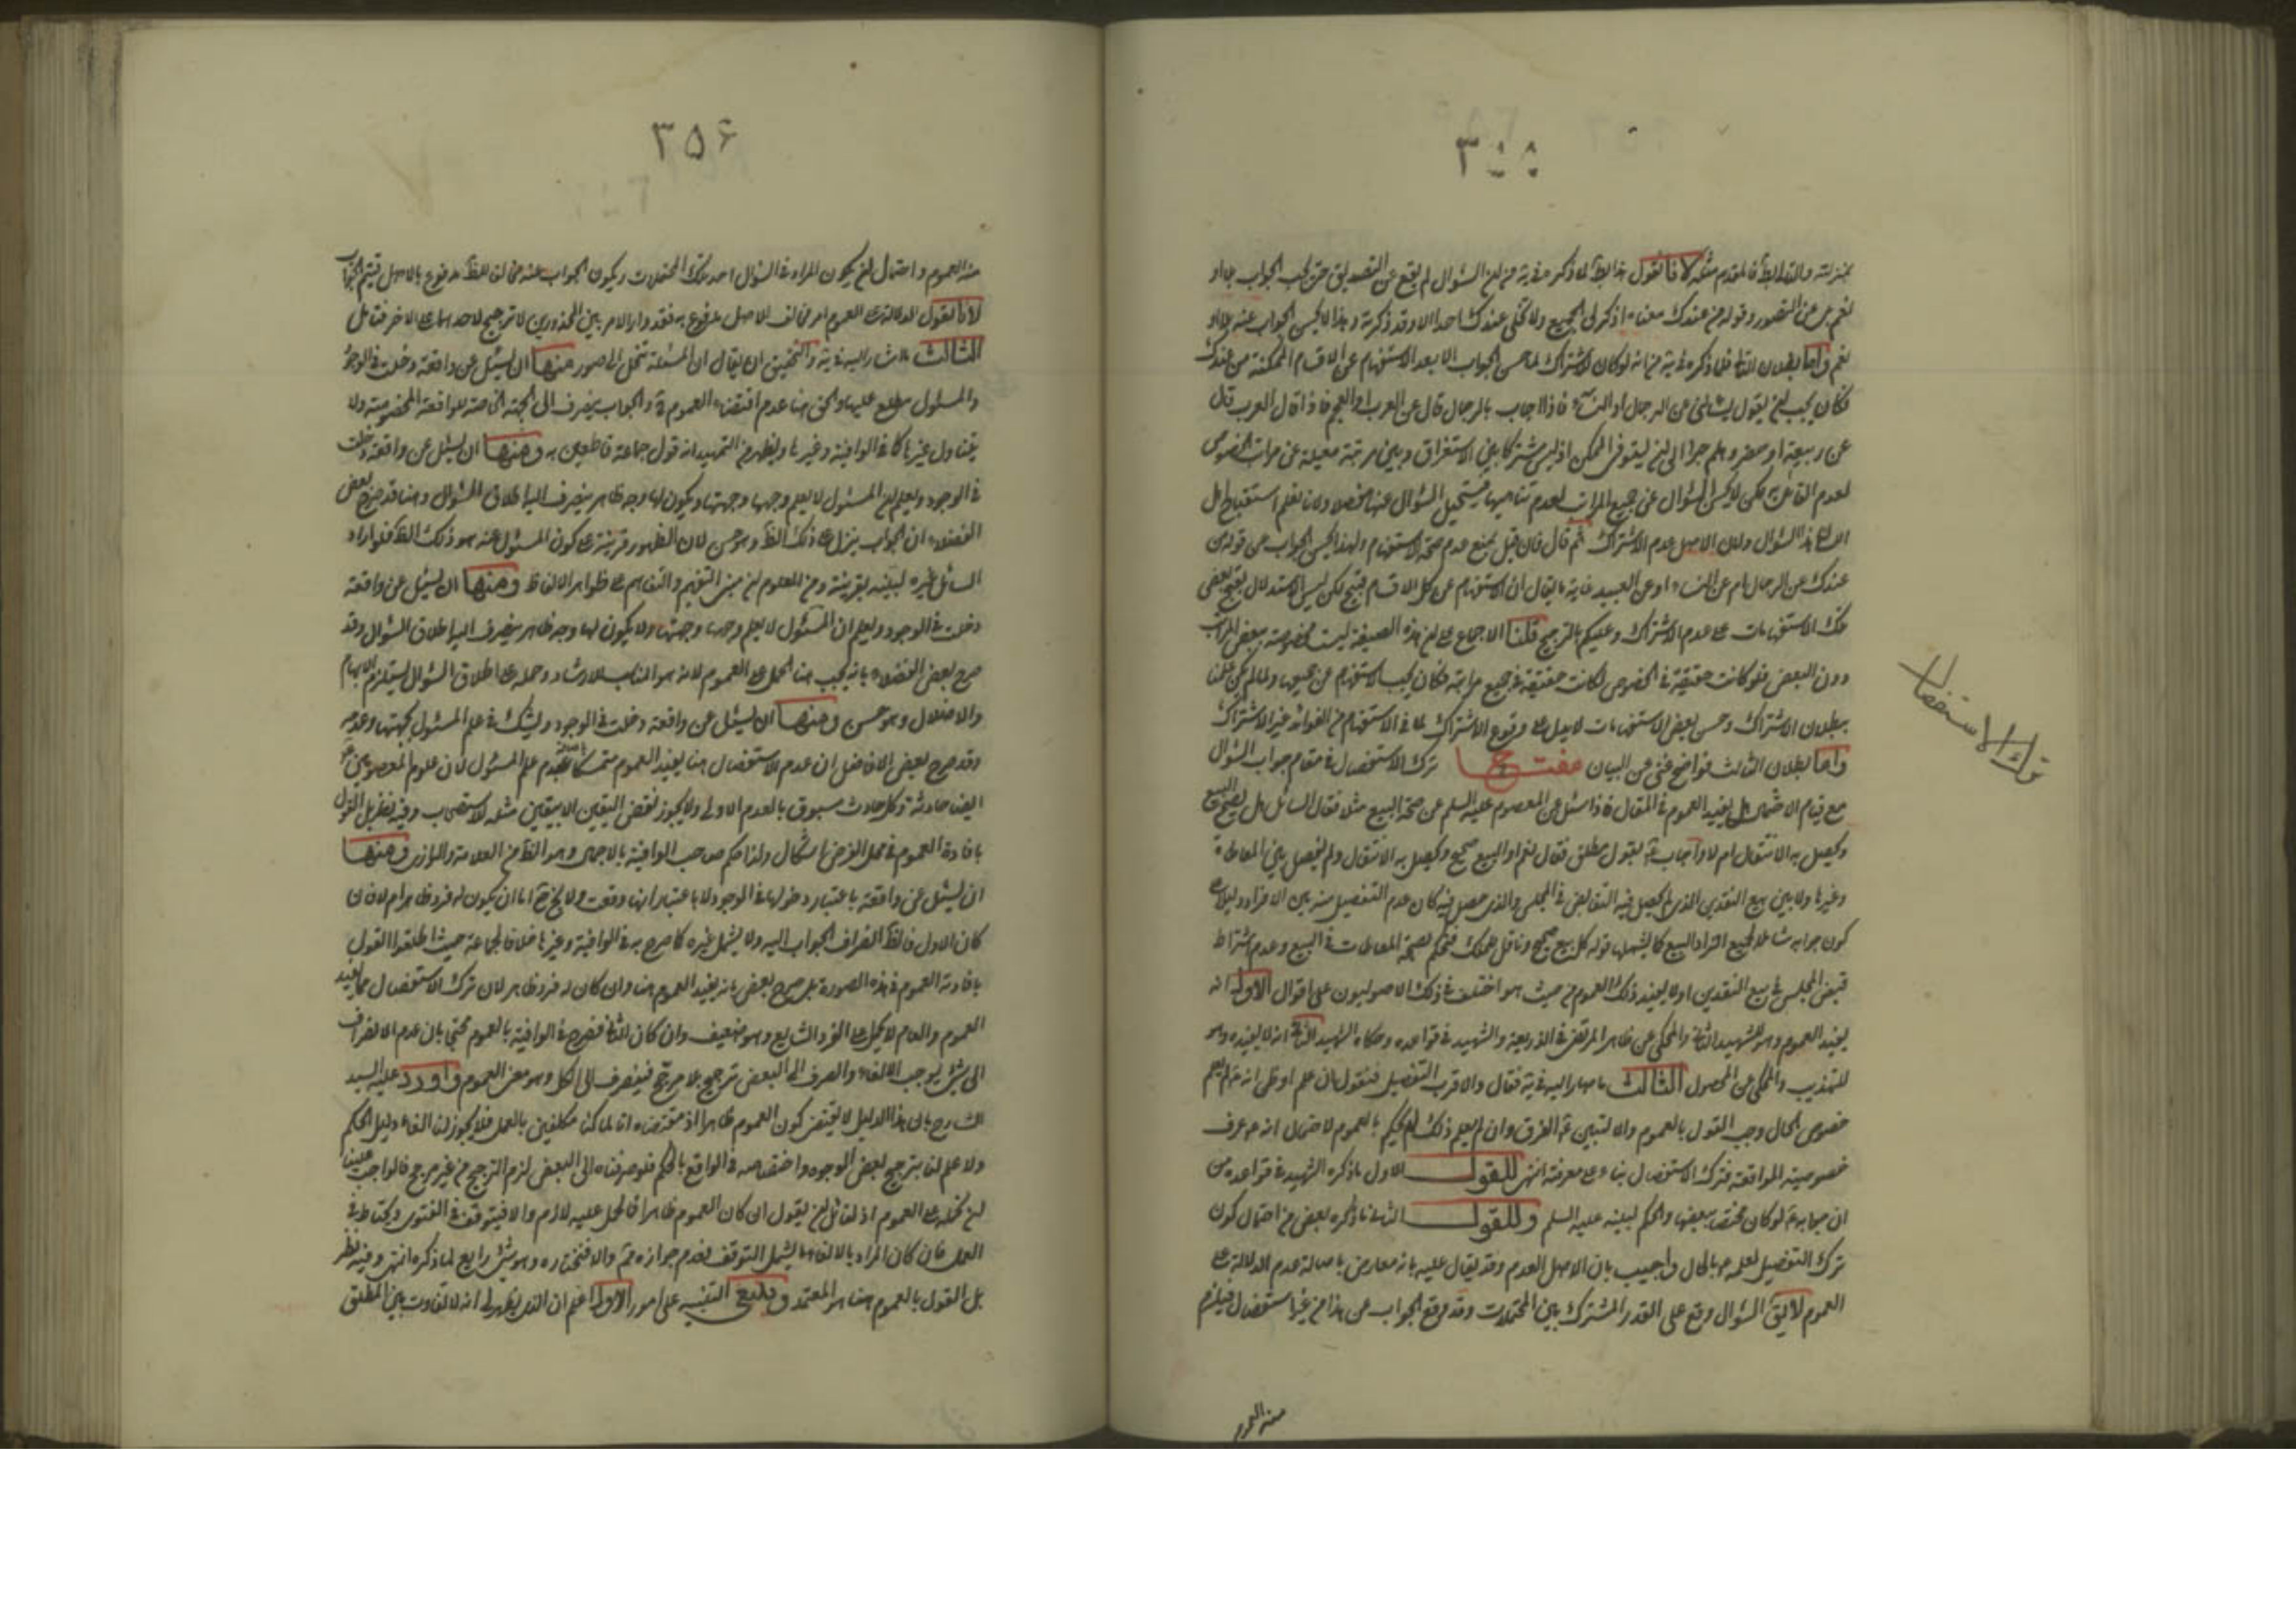 ٣٥٥
بمنزلته والتالى بط فالمقدم مثله لانا نقول
نعم وقوله من عندك معناه اذكر لى الجميع ولا تخلى عندك احدا الا وقد ذكرته وهذا لا يحسن الجواب عنه بلا او
نعم واما بطلان الثانى فلما ذكره فى يه من انه لو كان الاشتراك لما حسن الجواب الا بعد الاستفهام عن الاقسام الممكنة من عندك
فكان يجب ان يقول تسئلنى عن الرجال او النساء فاذا اجاب بالرجال قال عن العرب او العجم فاذا قال العرب قال
عن ربيعة او مضر وهلم جرا الى ان يستوفى الممكن اذ ليس مشتركا بين الاستغراق وبين مرتبة معينة من مراتب الخصوص
لعدم القائل به لكن لا يحسن السؤال عن جميع المراتب لعدم تناهيها فيستحيل السؤال عنها مفصلا ولانا نعلم استقباح اهل
اللسان هذا السؤال ولان الاصل عدم الاشتراك ثم قال فان قيل بمنع عدم صحة الاستفهام ولهذا يحسن الجواب عن قوله من
عندك عن الرجال ام عن النساء او عن العبيد غاية ما يقال ان الاستفهام عن كل الاقسام قبيح لكن ليس الاستدلال بقبح بعض
تلك الاستفهامات على عدم الاشتراك وعليكم بالترجيح قلنا الاجماع على ان هذه الصيغة ليست مخصوصة ببعض المراتب
دون البعض فلو كانت حقيقة فى الخصوص لكانت حقيقة فى جميع مراتبه فكان يجب الاستفهام عن جميعها ولما لم يكن علمنا
بطلان الاشتراك وحسن بعض الاستفهامات لا يدل على وقوع الاشتراك لما فى الاستفهام من الفوائد غير الاشتراك
واما بطلان الثالث فواضح غنى عن البيان مفتـــح ترك الاستفصال فى مقام جواب السؤال
مع قيام الاحتمال هل يفيد العموم فى المقال فاذا سئل عن المعصوم عليه السلم عن صحة البيع مثلا فقال السائل هل يصح البيع
ويحصل به الانتقال ام لا واجاب بقول مطلق فقال نعم او البيع صحيح ويحصل به الانتقال ولم يفصل بين المعاطاة
وغيرها ولا بين بيع النقدين الذى لم يحصل فيه التقابض فى المجلس والذى حصل فيه كان عدم التفصيل منه بين الافراد دليلا على
كون جوابه شاملا لجميع افراد البيع كما يشملها قوله كل بيع صحيح وناقل للملك فيحكم بصحة المعاطات فى البيع وعدم اشتراط
قبض المجلس فى بيع النقدين او لا يفيد ذلك العموم من حيث هو اختلف فى ذلك الاصوليون على اقوال الاول انه
يفيد العموم وهو للشهيد الثانى والمحكى عن ظاهر المرتضى فى الذريعة والشهيد فى قواعده وحكاه الشهيد الثانى انه لا يفيده وهو
للتهذيب والمحكى عن المحصول الثالث ما صار اليه فى يه فقال والاقرب التفصيل فنقول ان علم او ظن انه ع لم يعلم
خصوص الحال وجب القول بالعموم والا لتبين ع الفرق وان لم يعلم ذلك لم يحكم بالعموم لاحتمال انه ع عرف
خصوصية الواقعة فترك الاستفصال بناء على معرفته انتهى للقول الاول ما ذكره الشهيد فى قواعده من
ان جوابه ع لو كان مختصا ببعضها والحكم لبينه عليه السلم وللقول الثانى ما ذكره بعض من احتمال كون
ترك التفصيل لعلمه ع بالحال واجيب بان الاصل العدم وقد يقال عليه بانه معارض باصالة عدم الدلالة على
العموم لا يق السؤال وقع على القدر المشترك بين المحتملات وقد وقع الجواب عن هذا من غير استفصال فيلزم
منه العموم
ترك الاستفصال
٣٥۶
منه العموم واحتمال ان يكون المراد فى السؤال احد تلك المحتملات ويكون الجواب عنه مخالف للظ مدفوع بالاصل فيتم الجواب
لانا نقول الدلالة على العموم امر مخالف للاصل مدفوع به فقد دار الامر بين المحذورين لا ترجيح لاحدهما على الاخر فتامل
الثالث ما اشار اليه فى يه والتحقيق ان يقال ان المسئلة تنحل الى صور منها ان يسئل عن واقعة دخلت فى الوجود
والمسئول مطلع عليها والحق هنا عدم اقتضاء العموم والجواب ينصرف الى الجهة الخاصة للواقعة المخصوصة ولا
يتناول غيرها كما فى الوافية وغيرها ويظهر من التمهيد انه قول جماعة قاطعين به ومنها ان يسئل عن واقعة دخلت
فى الوجود ويعلم ان المسئول لا يعلم وجهها وجهتها ويكون لها وجه ظاهر ينصرف اليه اطلاق السؤال وهنا قد صرح بعض
الفضلاء ان الجواب ينزل على ذلك الظ وهو حسن لان الظهور قرينة على كون المسئول عنه هو ذلك الظ فلو اراد
السائل غيره لبينه بقرينة ومن المعلوم ان مبنى التفهيم والتفاهم على ظواهر الالفاظ ومنها ان يسئل عن واقعة
دخلت فى الوجود ويعلم ان المسئول لا يعلم وجهها وجهتها ولا يكون لها وجه ظاهر ينصرف اليه اطلاق السؤال وقد
صرح بعض الفضلاء بانه يجب هنا الحمل على العموم لانه هو المناسب للارشاد وحمله على اطلاق السؤال يستلزم الابهام
والاضلال وهو حسن ومنها ان يسئل عن واقعة دخلت فى الوجود ويشك فى علم المسئول بجهتها وعدمه
وقد صرح بعض الافاضل ان عدم الاستفصال هنا يفيد العموم متمسكا باصالة عدم علم المسئول لان علوم المعصومين ع
ايضا حادثة وكل حادث مسبوق بالعدم الاولى ولا يجوز نقض اليقين الا بيقين مثله للاستصحاب وفيه نظر بل القول
بافادة العموم فى محل الفرض اشكال ولذا حكم صاحب الوافية بالاجمال وهو الظ من العلامة والرازى ومنها
ان يسئل عن واقعة باعتبار دخولها فى الوجود لا باعتبار انها وقعت ولا يخ اما ان يكون له فرد ظاهر ام لا فان
كان الاول فالظ انصراف الجواب اليه ولا يشمل غيره كما صرح به فى الوافية وغيرها خلافا لجماعة حيث اطلقوا القول
بافادته العموم فى هذه الصورة بل صرح بعض بانه يفيد العموم هنا وان كان له فرد ظاهر لان ترك الاستفصال مما يفيد
العموم والعام لا يحمل على الفرد الشايع وهو ضعيف وان كان الثانى فصرح فى الوافية بالعموم محتجا بان عدم الانصراف
الى شئ يوجب الالغاء والصرف الى البعض ترجيح بلا مرجح فينصرف الى الكل وهو معنى العموم واورد عليه السيد
الشارح بان هذا الدليل لا يقتضى كون العموم ظاهرا اذ مقتضاه انا لما كنا مكلفين بالعمل فلا يجوز لنا الغاء دليل الحكم
ولا علم لنا بترجيح بعض الوجوه واختصاصه فى الواقع بالحكم فلو صرفناه الى البعض لزم الترجيح من غير مرجح فالواجب علينا
ان نحمله على العموم اذ لقائل ان يقول ان كان العموم ظاهرا فالحمل عليه لازم والا فيتوقف فى الفتوى ويحتاط فى
العمل فان كان المراد بالالغاء ما يشمل التوقف فعدم جوازه مم والا فنختاره وهو شئ رابع لما ذكره انتهى وفيه نظر
بل القول بالعموم هنا هو المعتمد وينبغى التنبيه على امور الاول اعلم ان الذى يظهر لى انه لا تفاوت بين المطلق